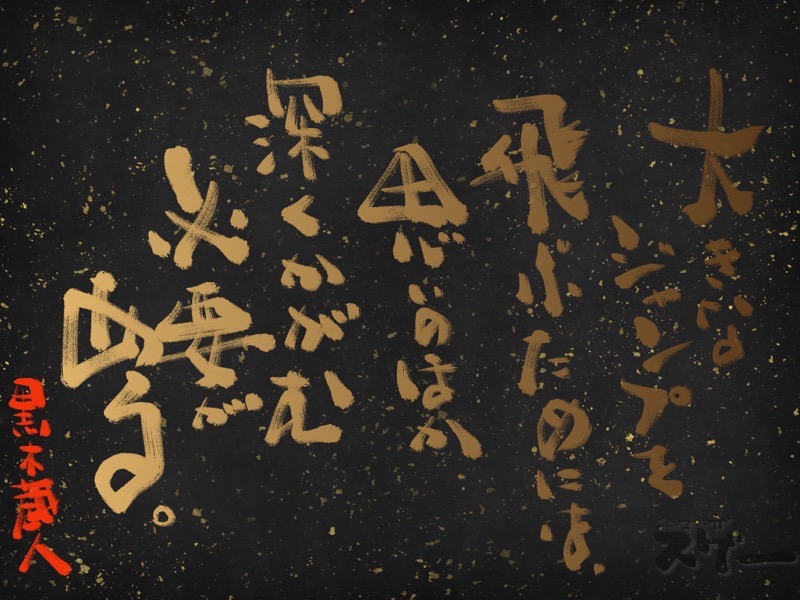 大きな
ジャンプを
飛ぶためには、
思いのほか
深くかがむ
必要が
ある。
黒木蔵人
スゲー